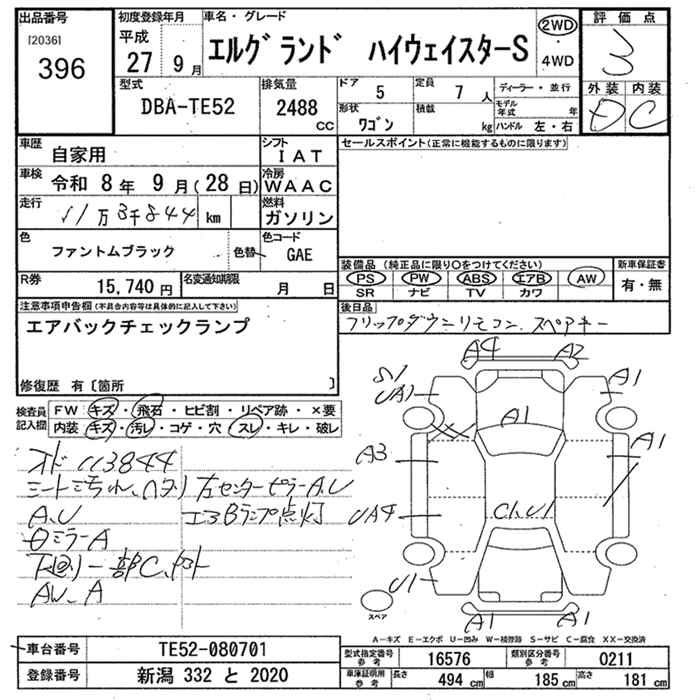 出品番号
[2036]
396
初度登録年月
平成
27 9月
車名・グレード
エルグランド ハイウェイスターS
2WD
・
4WD
評価点
3
外装 内装
D C
型式
DBA-TE52
排気量
2488
CC
ドア 5
定員 7 人
形状 ワゴン
積載 kg
ディーラー・並行
モデル年式 年
ハンドル 左・右
車歴 自家用
シフト IAT
車検 令和 8年 9月(28日)
冷房 WAAC
走行 11万3千844 km
燃料 ガソリン
色 ファントムブラック
色替
色コード GAE
R券 15,740円
名変通知期限 月 日
セールスポイント(正常に機能するものに限ります)
装備品(純正品に限り〇をつけてください)
PS PW ABS エアB AW
SR ナビ TV カワ
新車保証書
有・無
後日品
フリップダウンリモコン.スペアキー
注意事項申告欄(不具合内容等は具体的に記入して下さい)
エアバックチェックランプ
修復歴 有〔箇所 〕
検査員記入欄
FW キズ・飛石・ヒビ割・リペア跡・×要
内装 キズ・汚レ・コゲ・穴・スレ・キレ・破レ
オド 113844
シート汚れ、ヘタリ 左センターピラーA,U
A,U エアBランプ点灯
ミラーA
下廻り一部C
AW、A
A4 A2
UA1 A1
A1
A3 A1
UA4 C1,U1
U1
A1 A1
スペア
A-キズ E-エクボ U-凹み W-補修跡 S-サビ C-腐食 XX-交換済
車台番号 TE52-080701
登録番号 新潟 332 と 2020
型式指定番号参考 16576
類別区分番号参考 0211
車庫証明用参考 長さ 494 cm 幅 185 cm 高さ 181 cm